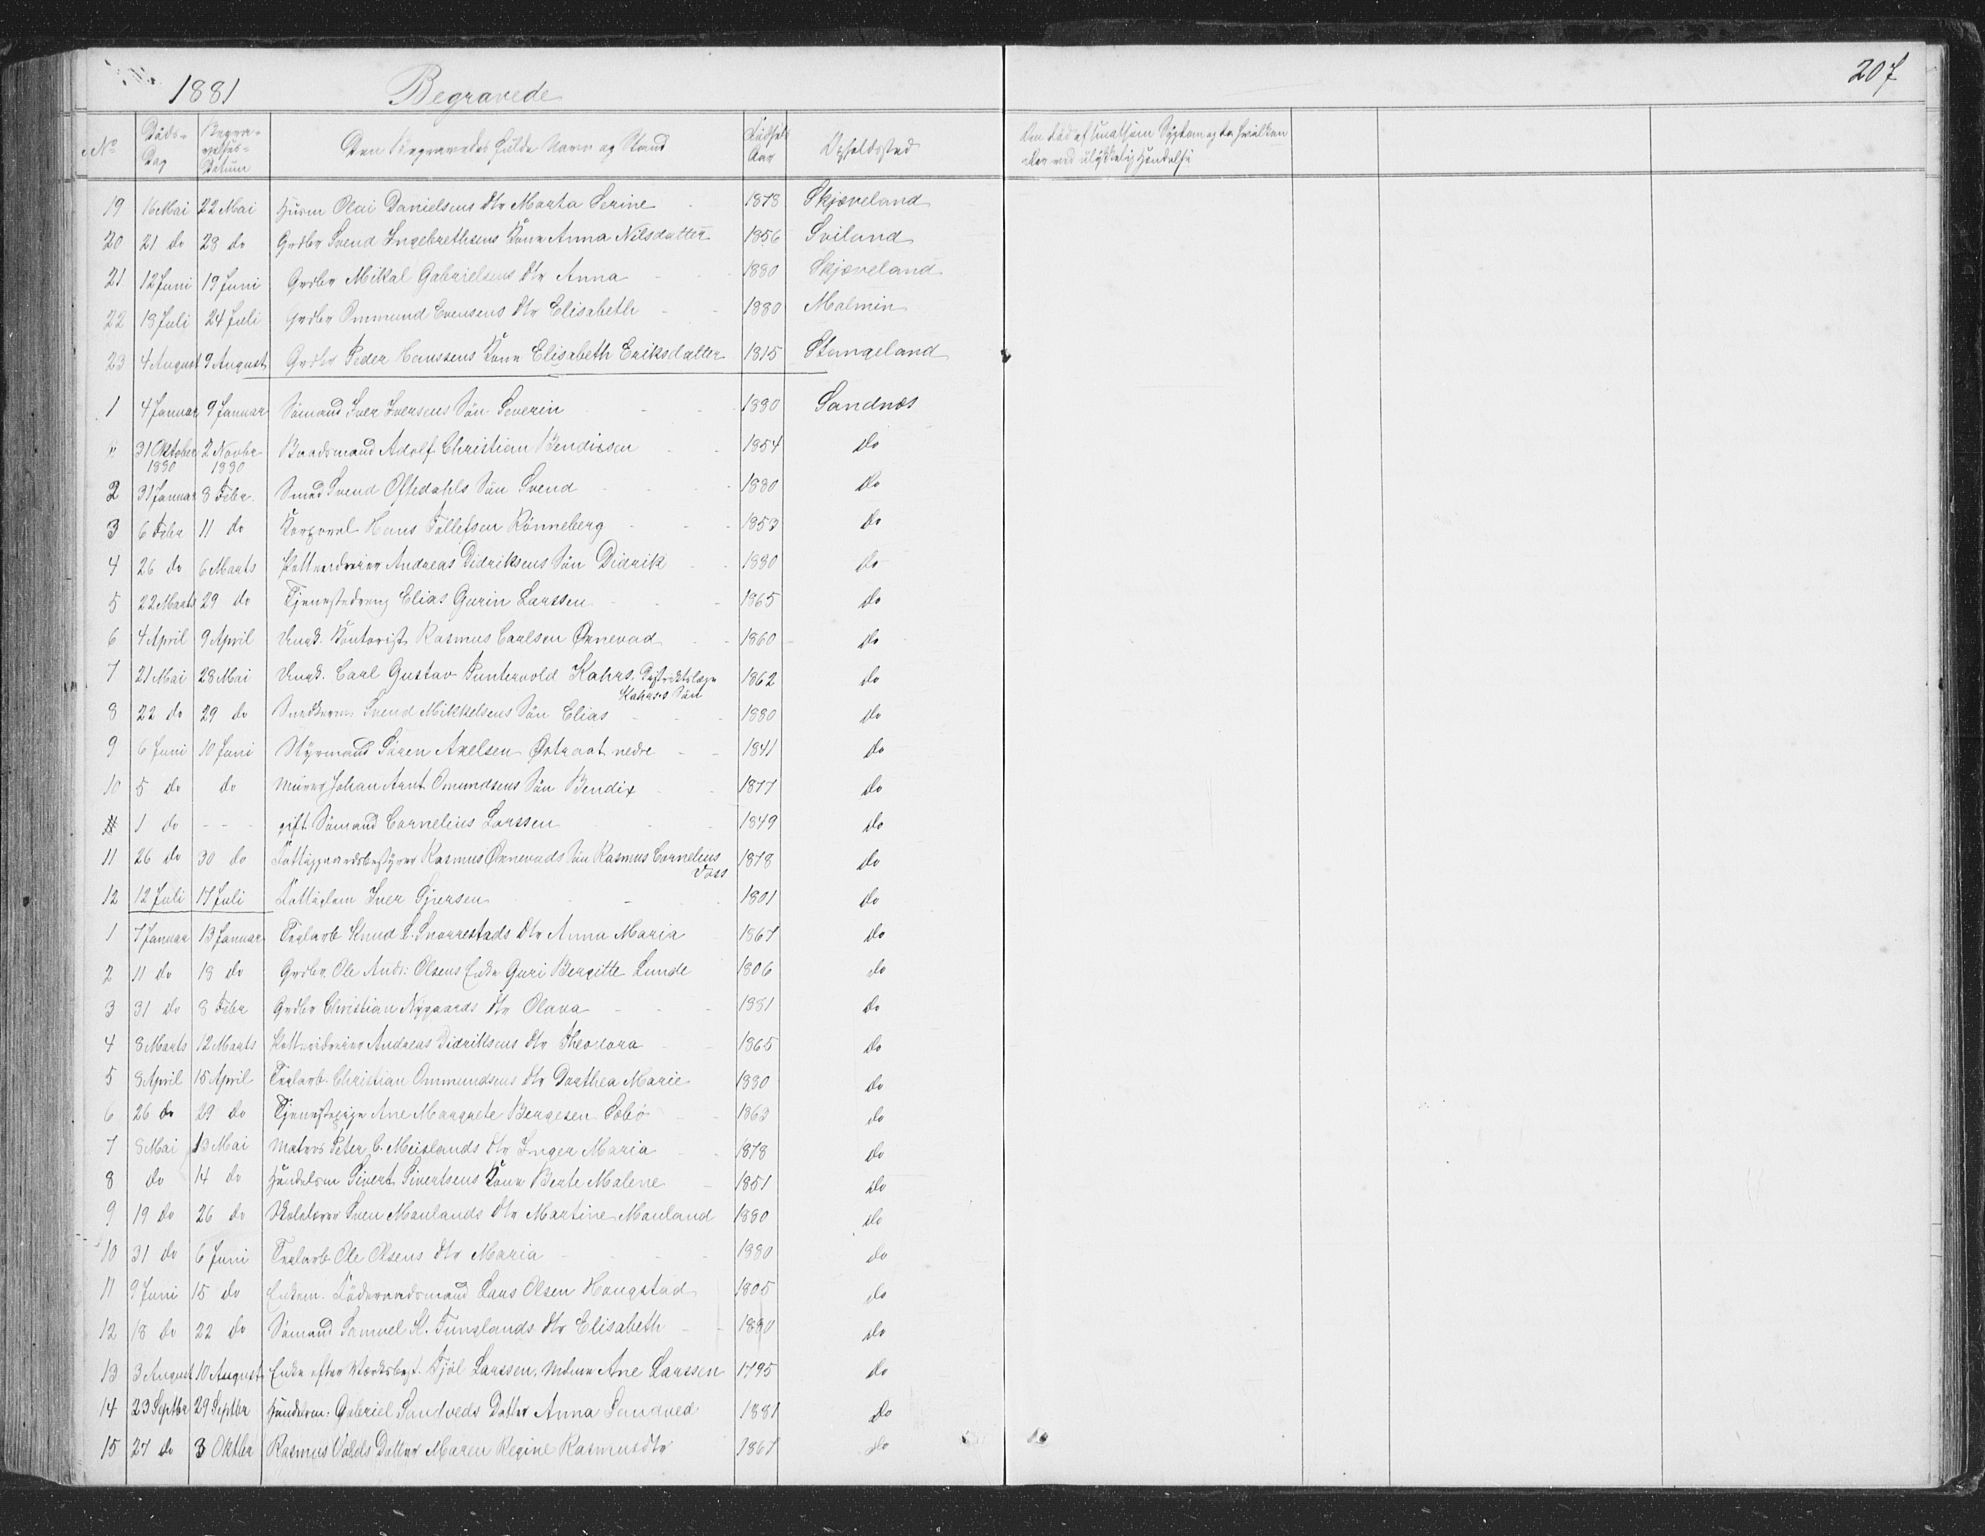 1881 Begravede 207
No Døds-Dag Begravelses-Datum Den Begravedes fulde Navn og Stand Fødsels Aar Opholdssted Om Død af smitsom Sygdom og da hvilken eller ved ulykkelig Hændelse
19 16 Mai 22 Mai Husm Olai Danielsens Dtr Marta Serine 1878 Skjæveland
20 21 do 28 do Grdbr Svend Ingebrethsens Kone Anna Nilsdatter 1856 Sviland
21 12 Juni 19 Juni Grdbr Mikal Gabrielsens Dtr Anna 1880 Skjæveland
22 18 Juli 24 Juli Grdbr Ommund Evensens Dtr Elisabeth 1880 Malmin
23 4 August 9 August Grdbr Peder Hanssens Kone Elisabeth Eriksdatter 1815 Stangeland
1 4 Januar 9 Januar Sømand Iver Iversens Søn Severin 1880 Sandnæs
" 31 Oktober 1880 2 Novbr 1880 Baadsmand Adolf Christian Bendixsen 1854 Do
2 31 Januar 8 Febr. Smed Svend Oftedahls Søn Svend 1880 Do
3 6 Febr 11 do Korporal Hans Tollefsen Rønneberg 1853 Do
4 26 do 6 Marts Pottendreier Andreas Didriksens Søn Didrik 1880 Do
5 22 Marts 29 do Tjenestedreng Elias Gurin Larssen 1865 Do
6 4 April 9 April Ungk. Kontorist Rasmus Carlsen Ørnevad 1860 Do
7 21 Mai 28 Mai Ungk. Carl Gustav Puntervold Kahrs, Distriktslæge Kahrs's Søn 1862 do
8 22 do 29 do Snedkerm Svend Mikkelsens Søn Elias 1880 do
9 6 Juni 10 Juni Styrmand Søren Axelsen Østraat nedre 1841 Do
10 5 do do Murer Johan Arnt Omundsens Søn Bendix 1877 Do
1 do - - - gift Sømand Cornelius Larssen 1849 Do
11 26 do 30 do Fattiggaardsbestyrer Rasmus Ørnevads Søn Rasmus Cornelius Voss 1878 Do
12 12 Juli 17 Juli Fattiglem Iver Gjersen 1801 Do
1 7 Januar 13 Januar Teglarb Knud S. Snorrestads Dtr Anna Maria 1867 Do
2 11 do 18 do Grdbr Ole Ands: Olsens Enke Guri Bergitte Lunde 1806 do
3 31 do 8 Febr Grdbr Christian Nygaards Dtr Olava 1881 Do
4 8 Marts 12 Marts Pottendreier Andreas Didriksens Dtr Theodora 1865 Do
5 8 April 15 April Teglarb Christian Ommundsens Dtr Dorthea Marie 1880 Do
6 26 do 29 do Tjenestepige Ane Margrete Bergesen Sæbø 1863 do
7 8 Mai 13 Mai Matros Peter C. Meislands Dtr Inger Maria 1878 Do
8 do 14 do Handelsm Sivert Sivertsens Kone Berte Malene 1851 Do
9 19 do 26 do Skolelærer Sven Maulands Dtr Martine Mauland 1880 Do
10 31 do 6 Juni Teglarb Ole Olsens Dtr Maria 1880 do
11 9 Juni 15 do Enkem. Føderaadsmand Lars Olsen Hongstad 1805 do
12 18 do 22 do Sømand Samuel K. Tunglands Dtr Elisabeth 1880 Do
13 3 August 10 August Enke efter Værksbest. Fjøl Larssen, Malene Ane Larssen 1795 Do
14 23 Septbr 29 Septbr Handelsm: Gabriel Sandveds Datter Anna Sandved 1881 Do
15 27 do 3 Oktbr Rasmus Volds Datter Maren Regine Rasmusdtr 1867 do